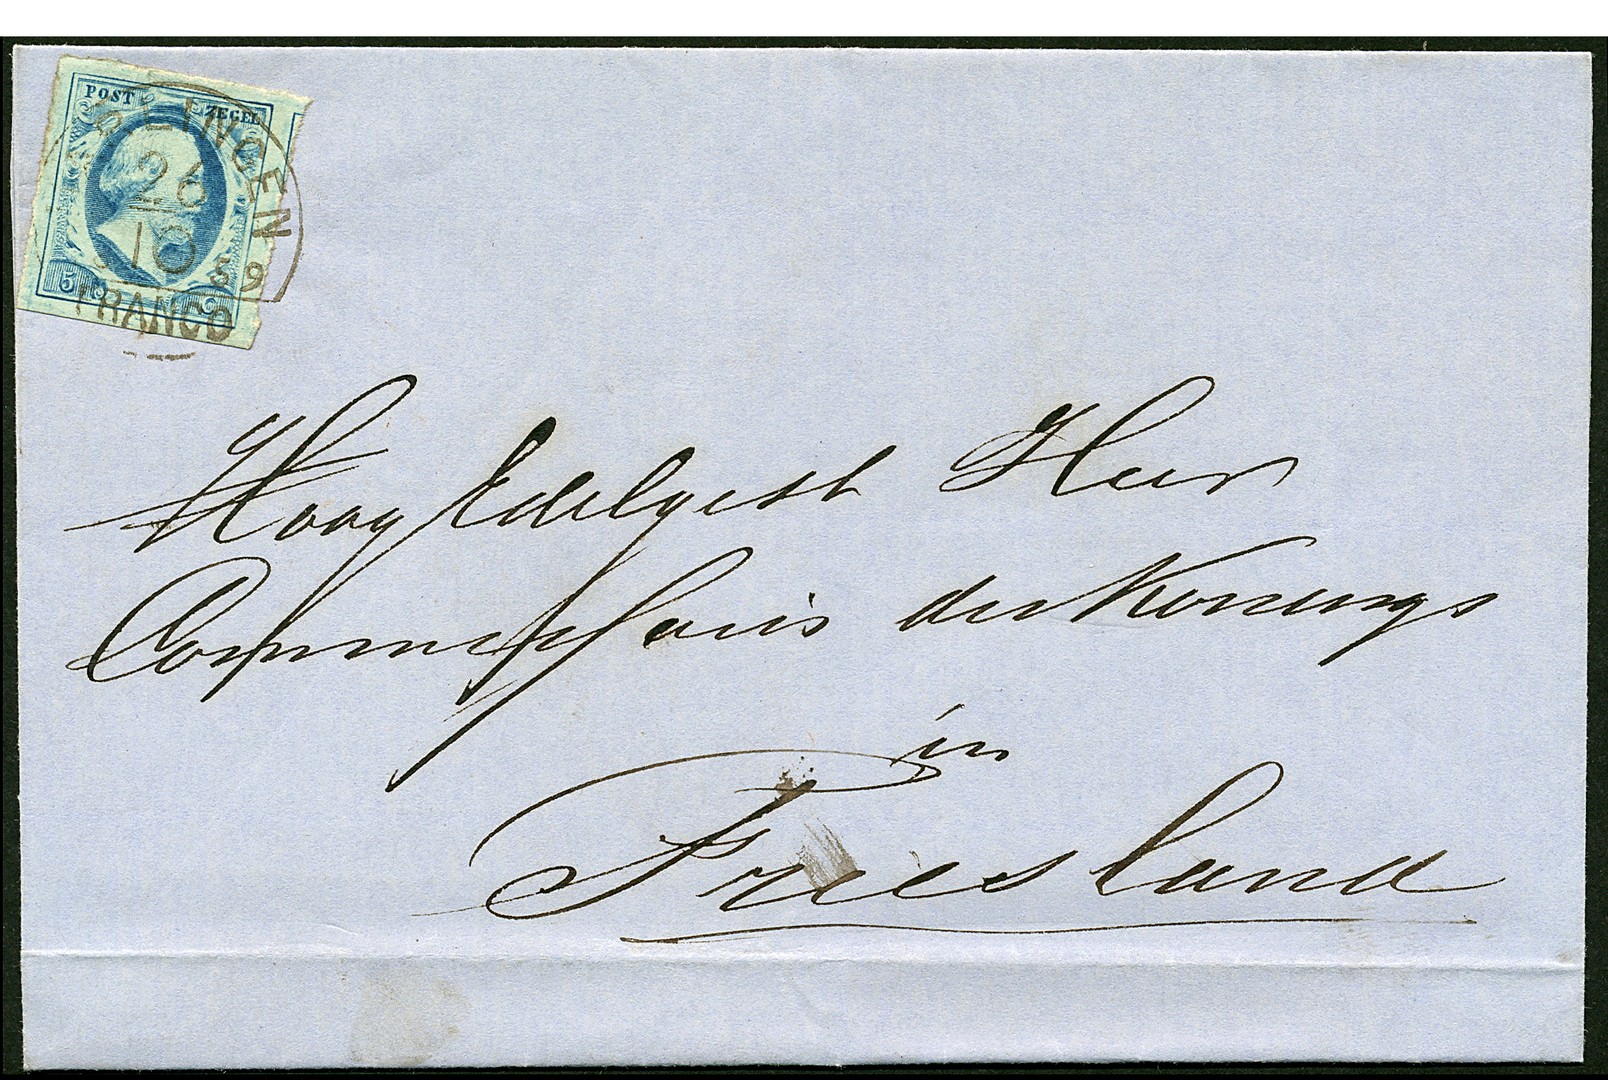 POST ZEGEL
RLINGEN
26
10
59
5 C
FRANCO
Hoog Edelgest Heer
Commissaris des Konings
in
Friesland